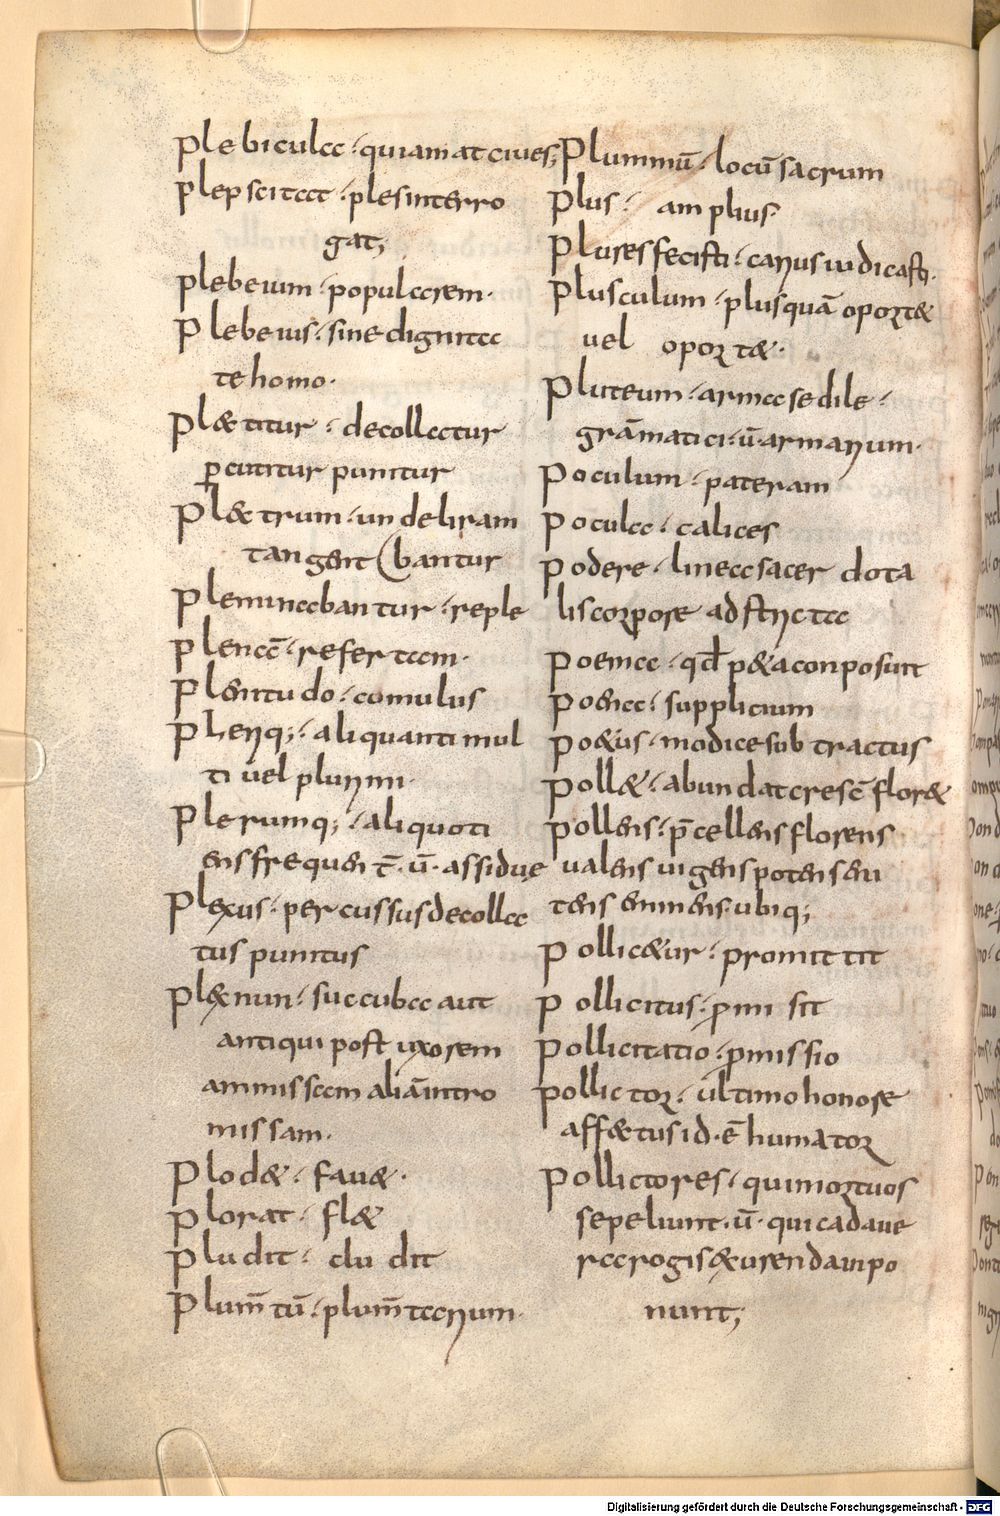 Plebicula · qui amat cives;
plepscitat · ples interro
gat;
plebeium · popularem ·
Plebeius · sine dignita
te homo ·
Plætitur · decollatur
ꝑcutitur punitur
Plætrum · unde liram
tangent (bantur
Pleminabantur · reple
plenā · refertam ·
Plenitudo · comulus
Pleriq; · aliquanti mul
ti vel plurimi ·
Plerumq; · aliquoti
ens frequent̄ · ū · assidue
Plexus · percussus decolla
tus punitus
Plænun · succuba aut
antiqui post uxorem
ammissam aliā intro
missam ·
Plodæ · favæ ·
Plorat · flæ
Pludit · cludit
Plum̄tū · plum̄tarium ·
Plummū · locū sacrum
Plus · amplius
Plures fecisti · carius iudicasti ·
Plusculum · plus quā oportæ
vel oportæ ·
Pluteum · arma sedile ·
grāmatici · ū · armarium ·
Poculum · pateram
Pocula · calices
Podere · linea sacerdota
lis corpore adstricta
poema · qđ poeta conposuit
poena · supplicium
poetus · modice sobtractus
pollæ · abundat cresc̄ floræ
pollens · p̄cellens florens
valens vigens potens eni
tens eminens · ubiq;
Pollicetur · promittit
pollicitus · ꝓmisit
Pollicitatio · ꝓmissio
pollictor · ultimo honore
affætus id · ē humator
Pollictores · qui mortuos
sepeliunt · ū · qui cadave
ra rogis et urendam po
nunt;
Digitalisierung gefördert durch die Deutsche Forschungsgemeinschaft - DFG